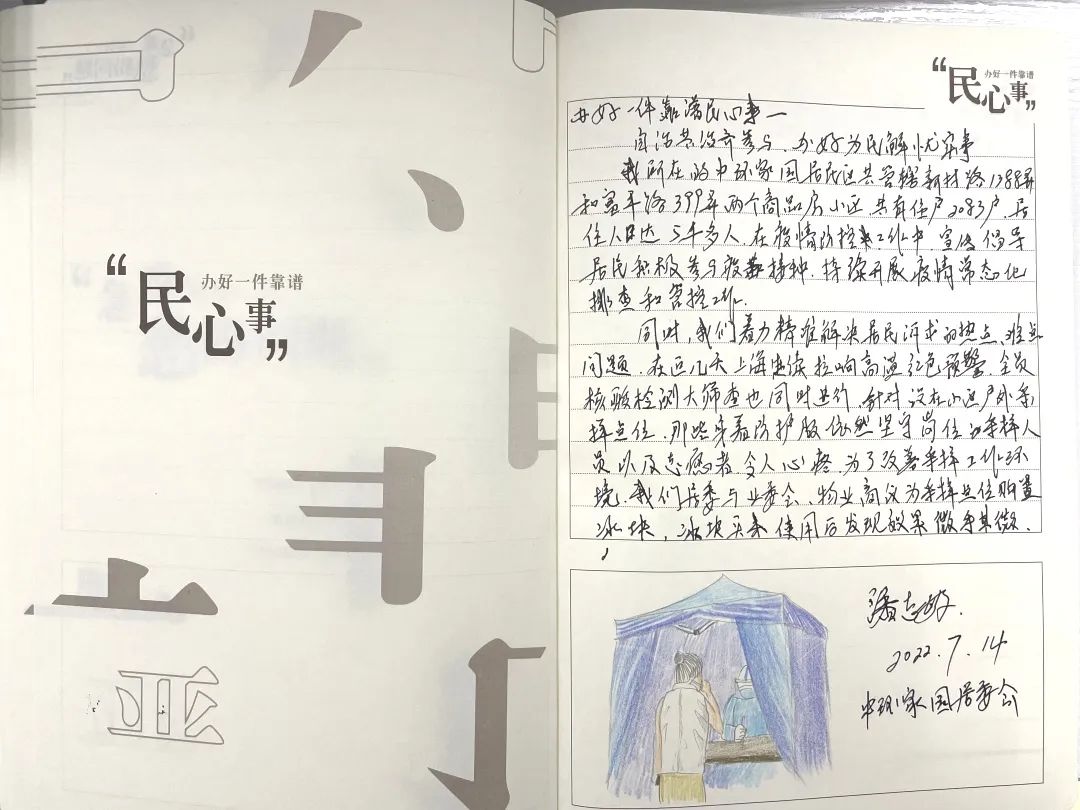 “民心事”
办好一件靠谱
“民心事”
办好一件靠谱
办好一件靠谱民心事—
自治共治齐参与、办好为民解忧实事
我所在的中环家园居民区共管辖新村路1288弄
和富平路399弄两个商品房小区，共有住户2083户，居
住人口达5千多人，在疫情防控工作中，宣传倡导
居民积极参与疫苗接种，持续开展疫情常态化
排查和管控工作。
同时，我们着力精准解决居民诉求的热点、难点
问题，在近几天上海连续拉响高温红色预警，全员
核酸检测大筛查也同时进行，针对设在小区户外采
样点位，那些身着防护服依然坚守岗位的采样人
员以及志愿者，令人心疼，为了改善采样工作环
境，我们居委与业委会、物业商议为采样点位购置
冰块，冰块买来使用后发现效果微乎其微。
2022.7.14
中环家园居委会